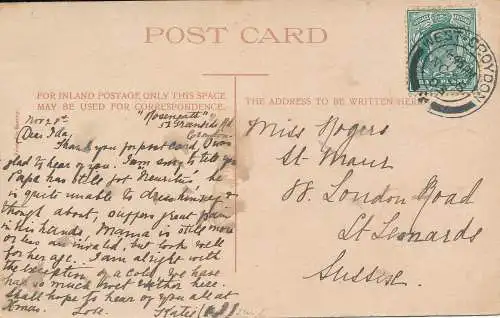 POST CARD
FOR INLAND POSTAGE ONLY THIS SPACE
MAY BE USED FOR CORRESPONDENCE.
THE ADDRESS TO BE WRITTEN HERE
WEST CROYDON
Nov 28th "Roseneath"
Croydon
Dear Ida,
Thank you for post card, I was
glad to hear of you. I am sorry to tell you
Papa has still got Neuritis he
is quite unable to dress himself
though about, suffers great pain
in his hands, Mama is still more
or less an invalid, but look well
for her age. I am alright with
the exception of a Cold. We have
had so much wet weather here.
Shall hope to hear of you all at
Xmas. Love. Katie
Miss Rogers
St Maur
88. London Road
St Leonards
Sussex.